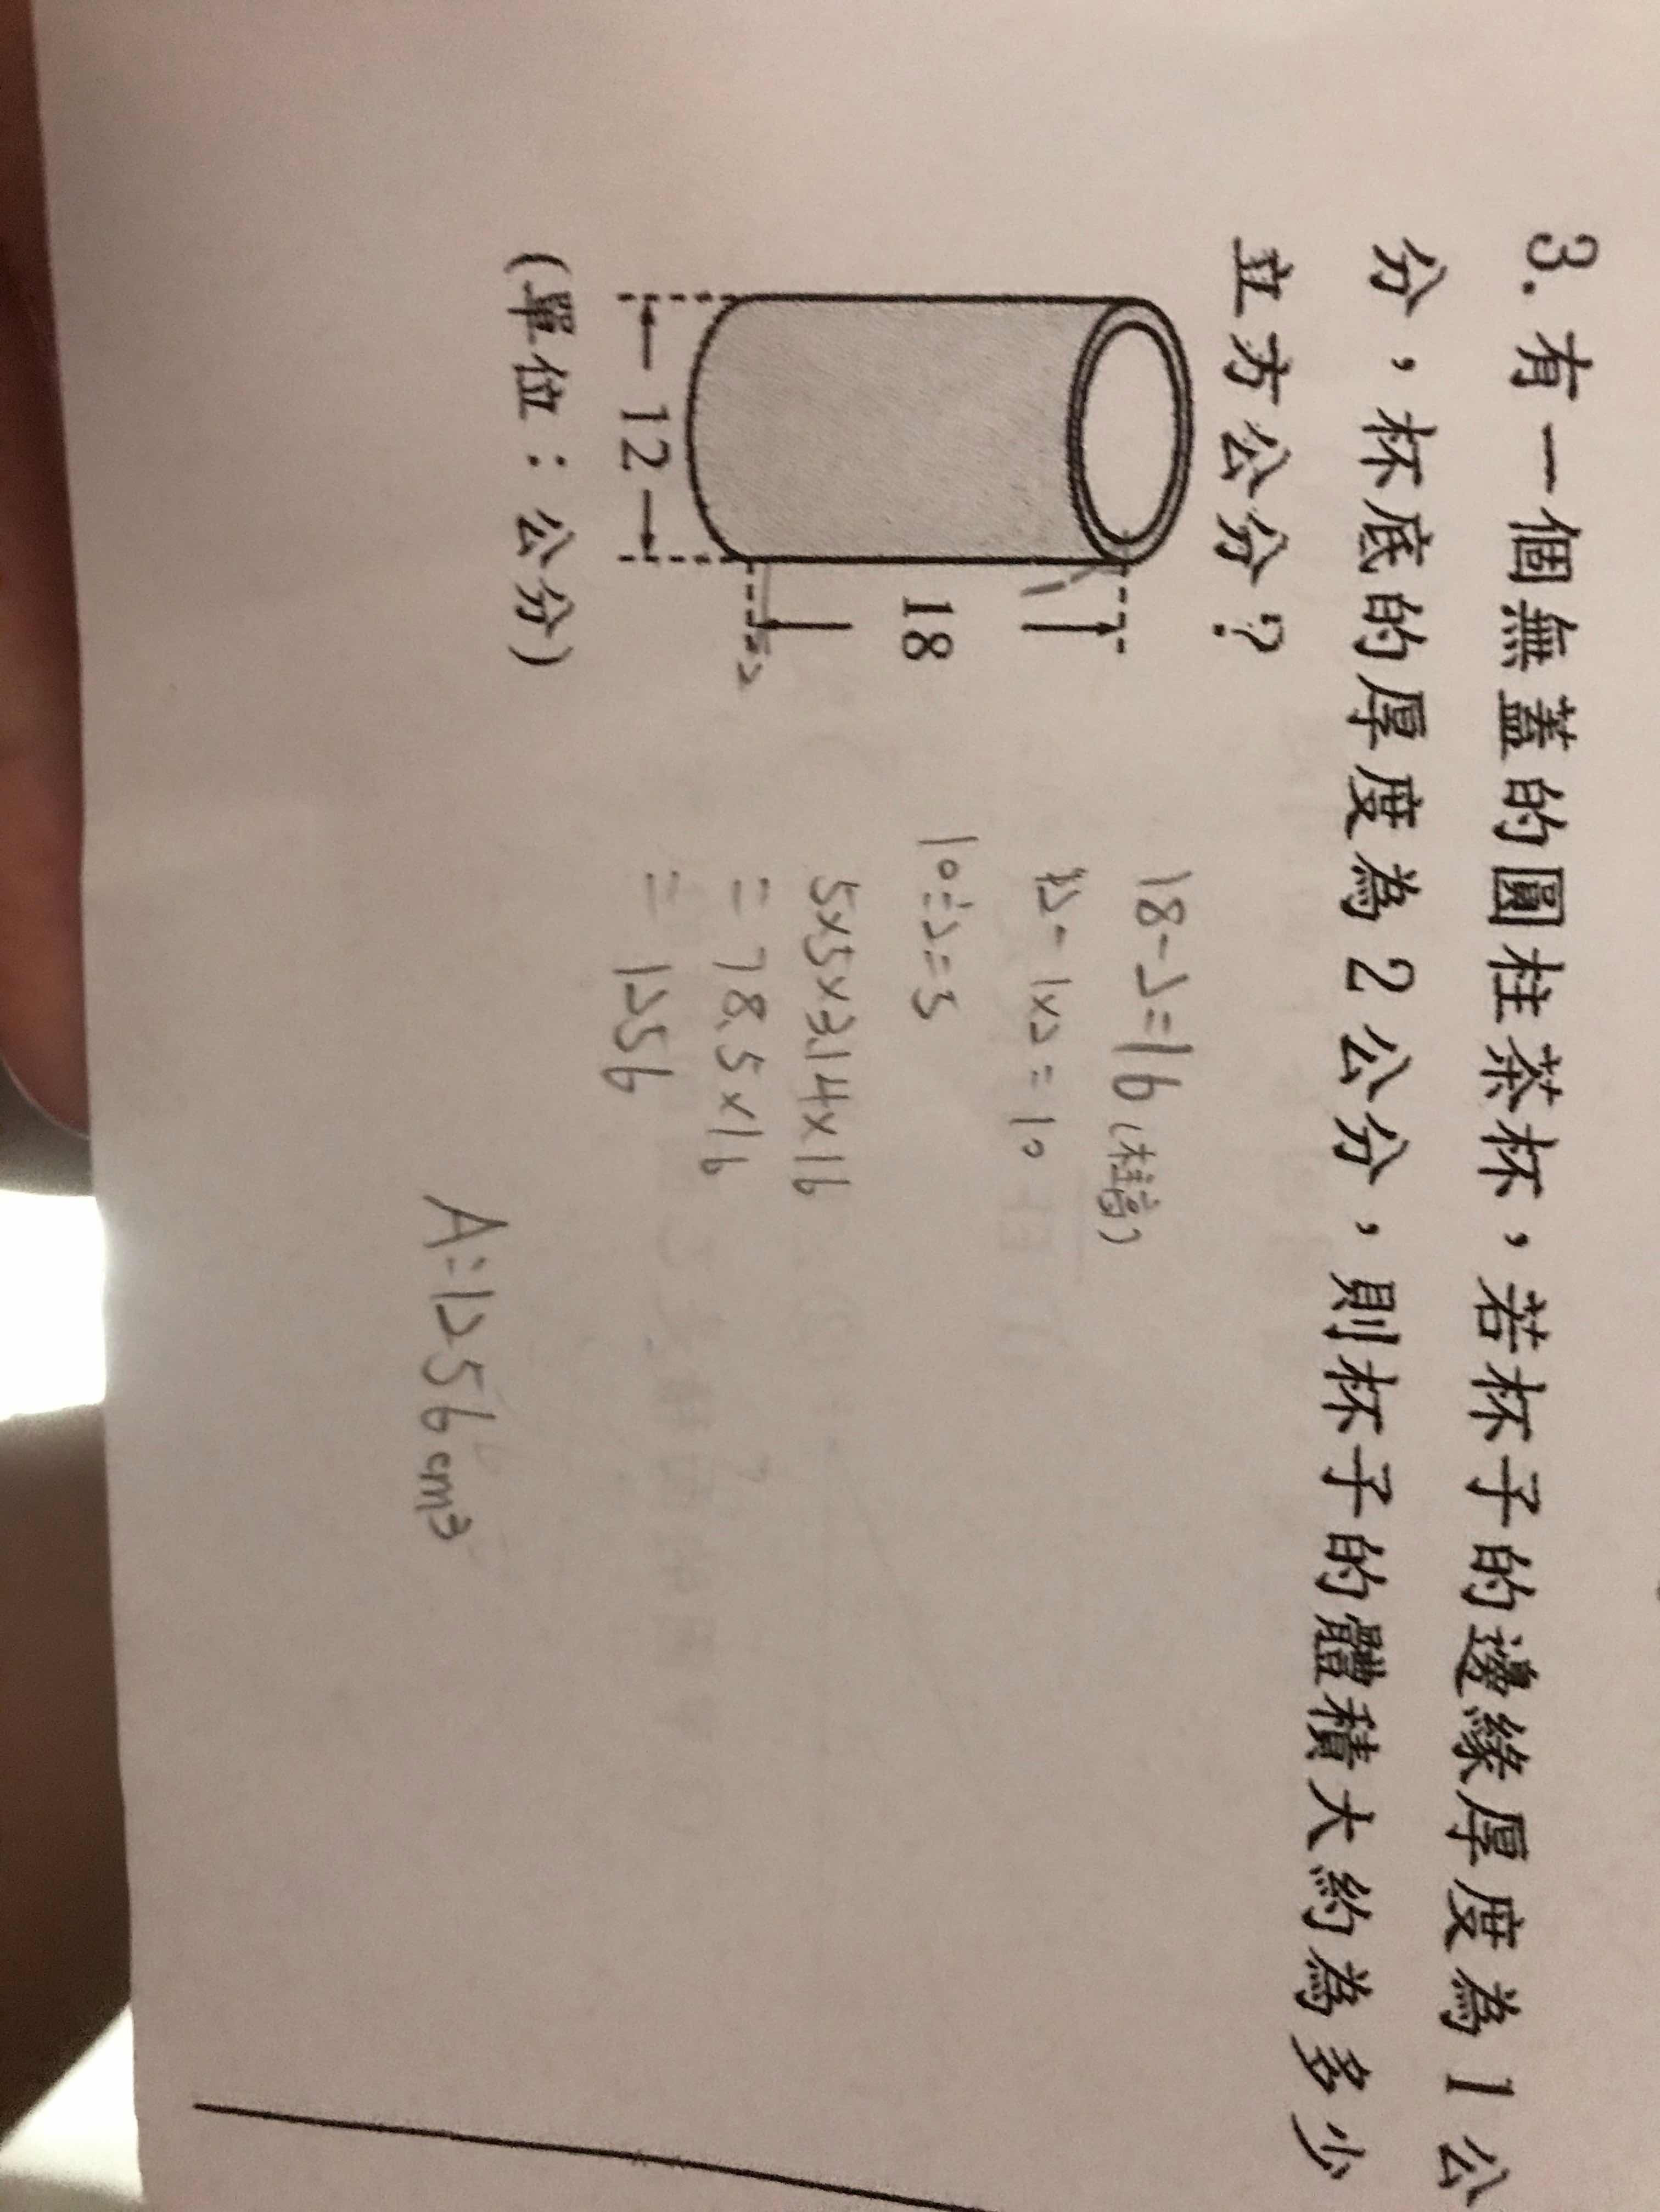 3. 有一個無蓋的圓柱茶杯，若杯子的邊緣厚度為 1 公
分，杯底的厚度為 2 公分，則杯子的體積大約為多少
立方公分？
18
12
(單位：公分)
18-2=16(柱高)
12-1×2=10
10÷2=5
5×5×3.14×16
=78.5×16
=1256
A:1256cm³